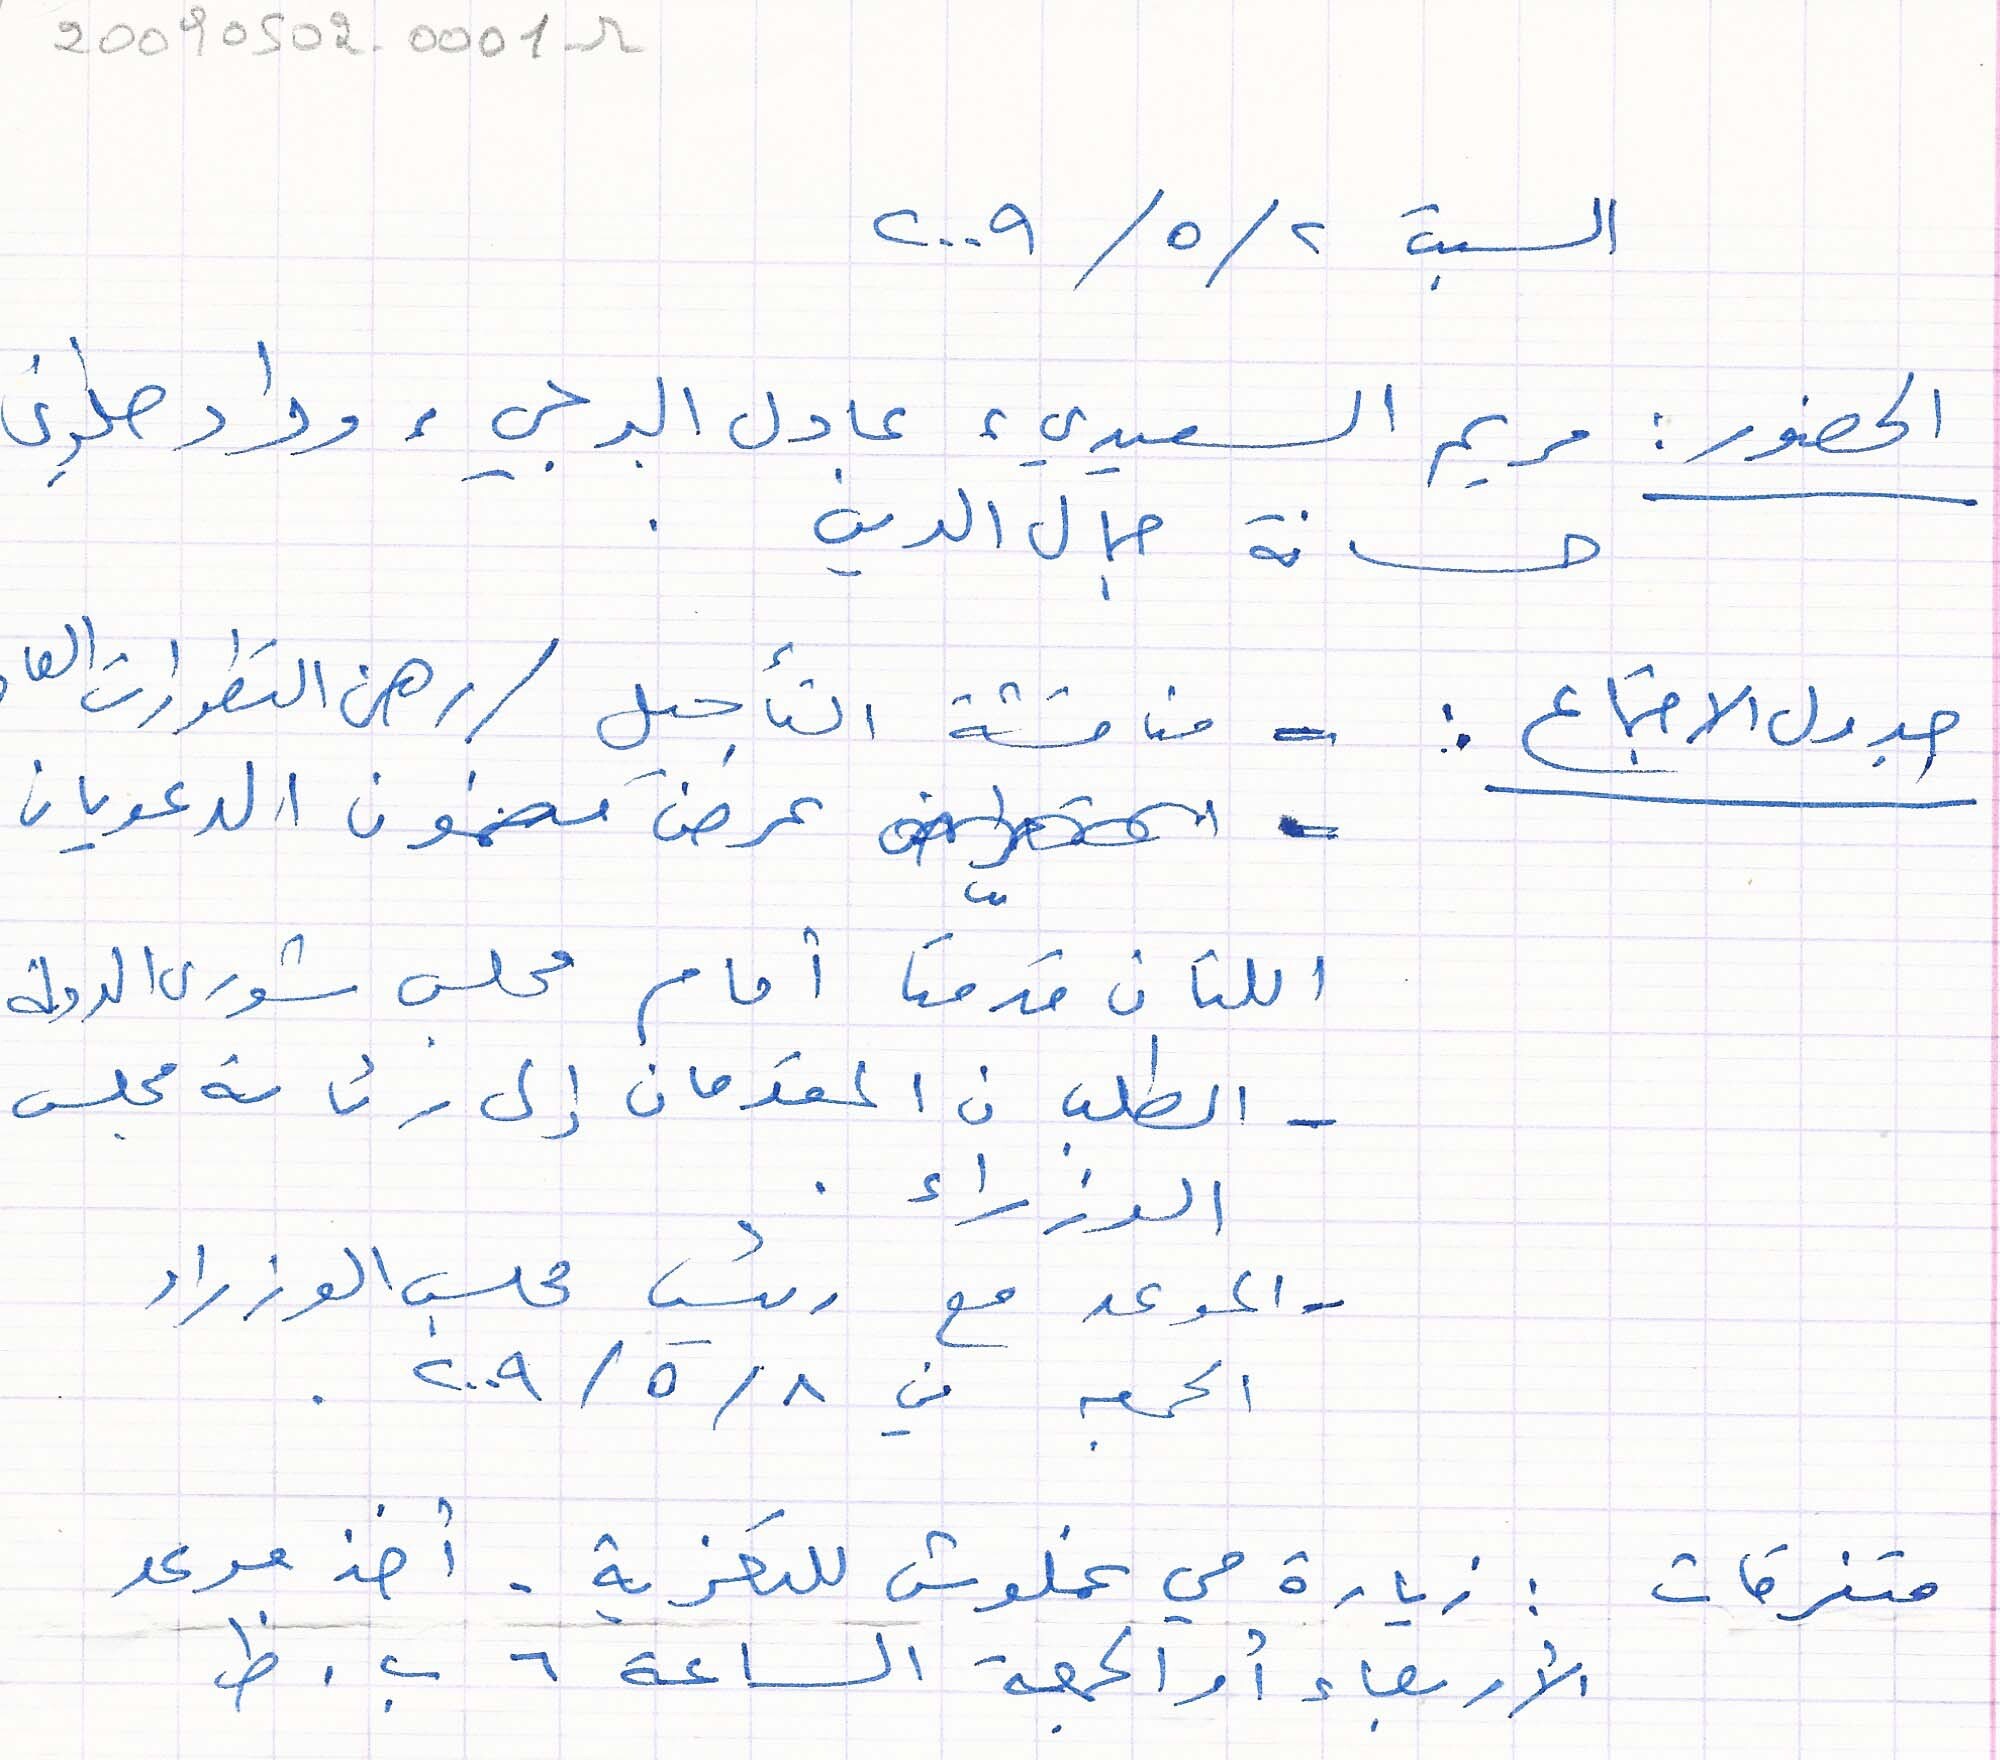 20090502-0001-r
السبت ٢/٥/٢٠٠٩
الحضور: مريم السعيدي، عادل البرجي، وداد حلواني
حسانة جمال الدين.
جدول الاجتماع: - مناقشة التأجيل / رهن التطورات
- عرض مضمون الدعويان
اللتان قدمتا أمام مجلس شورى الدولة
- الطلبان المقدمان إلى رئاسة مجلس
الوزراء.
- الموعد مع رئيس مجلس الوزراء
الجمعه في ٨/٥/٢٠٠٩.
متفرقات: زيارة مي للتعزية - أخذ موعد
الأربعاء أو الجمعة الساعة ٦ ب. ظ